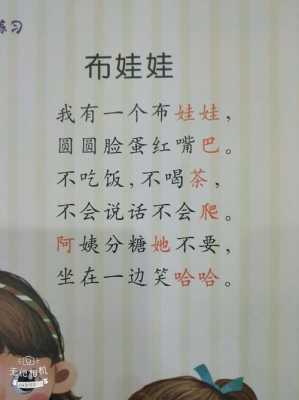 练习
布娃娃
我有一个布娃娃,
圆圆脸蛋红嘴巴。
不吃饭,不喝茶,
不会说话不会爬。
阿姨分糖她不要,
坐在一边笑哈哈。
无他相机